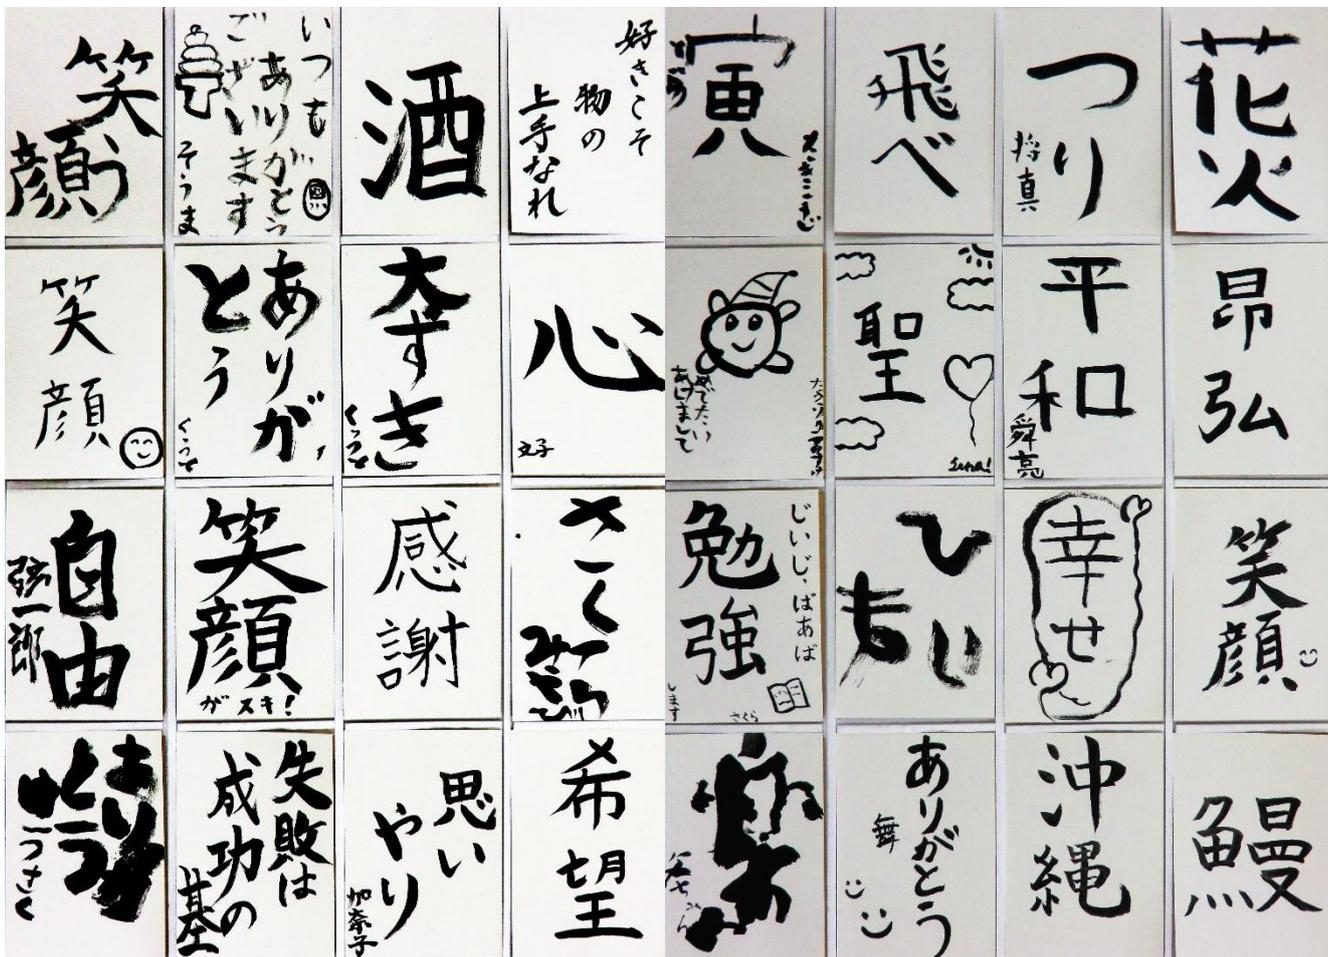 笑う
顔
いつも
ありがとう
ございます
そうま
酒
好きこそ
物の
上手なれ
寅
飛べ
つり
将真
花火
笑顔
ありが
とう
大すき
心
文子
めでたい
あけまして
聖
平和
舜亮
昂弘
自由
弦一郎
笑顔
がスキ!
感謝
さく
じいじ・ばあば
勉強
します
さくら
幸せ
笑顔
失敗は
成功の
基
思い
やり
加奈子
希望
ありがとう
舞
沖縄
鰻